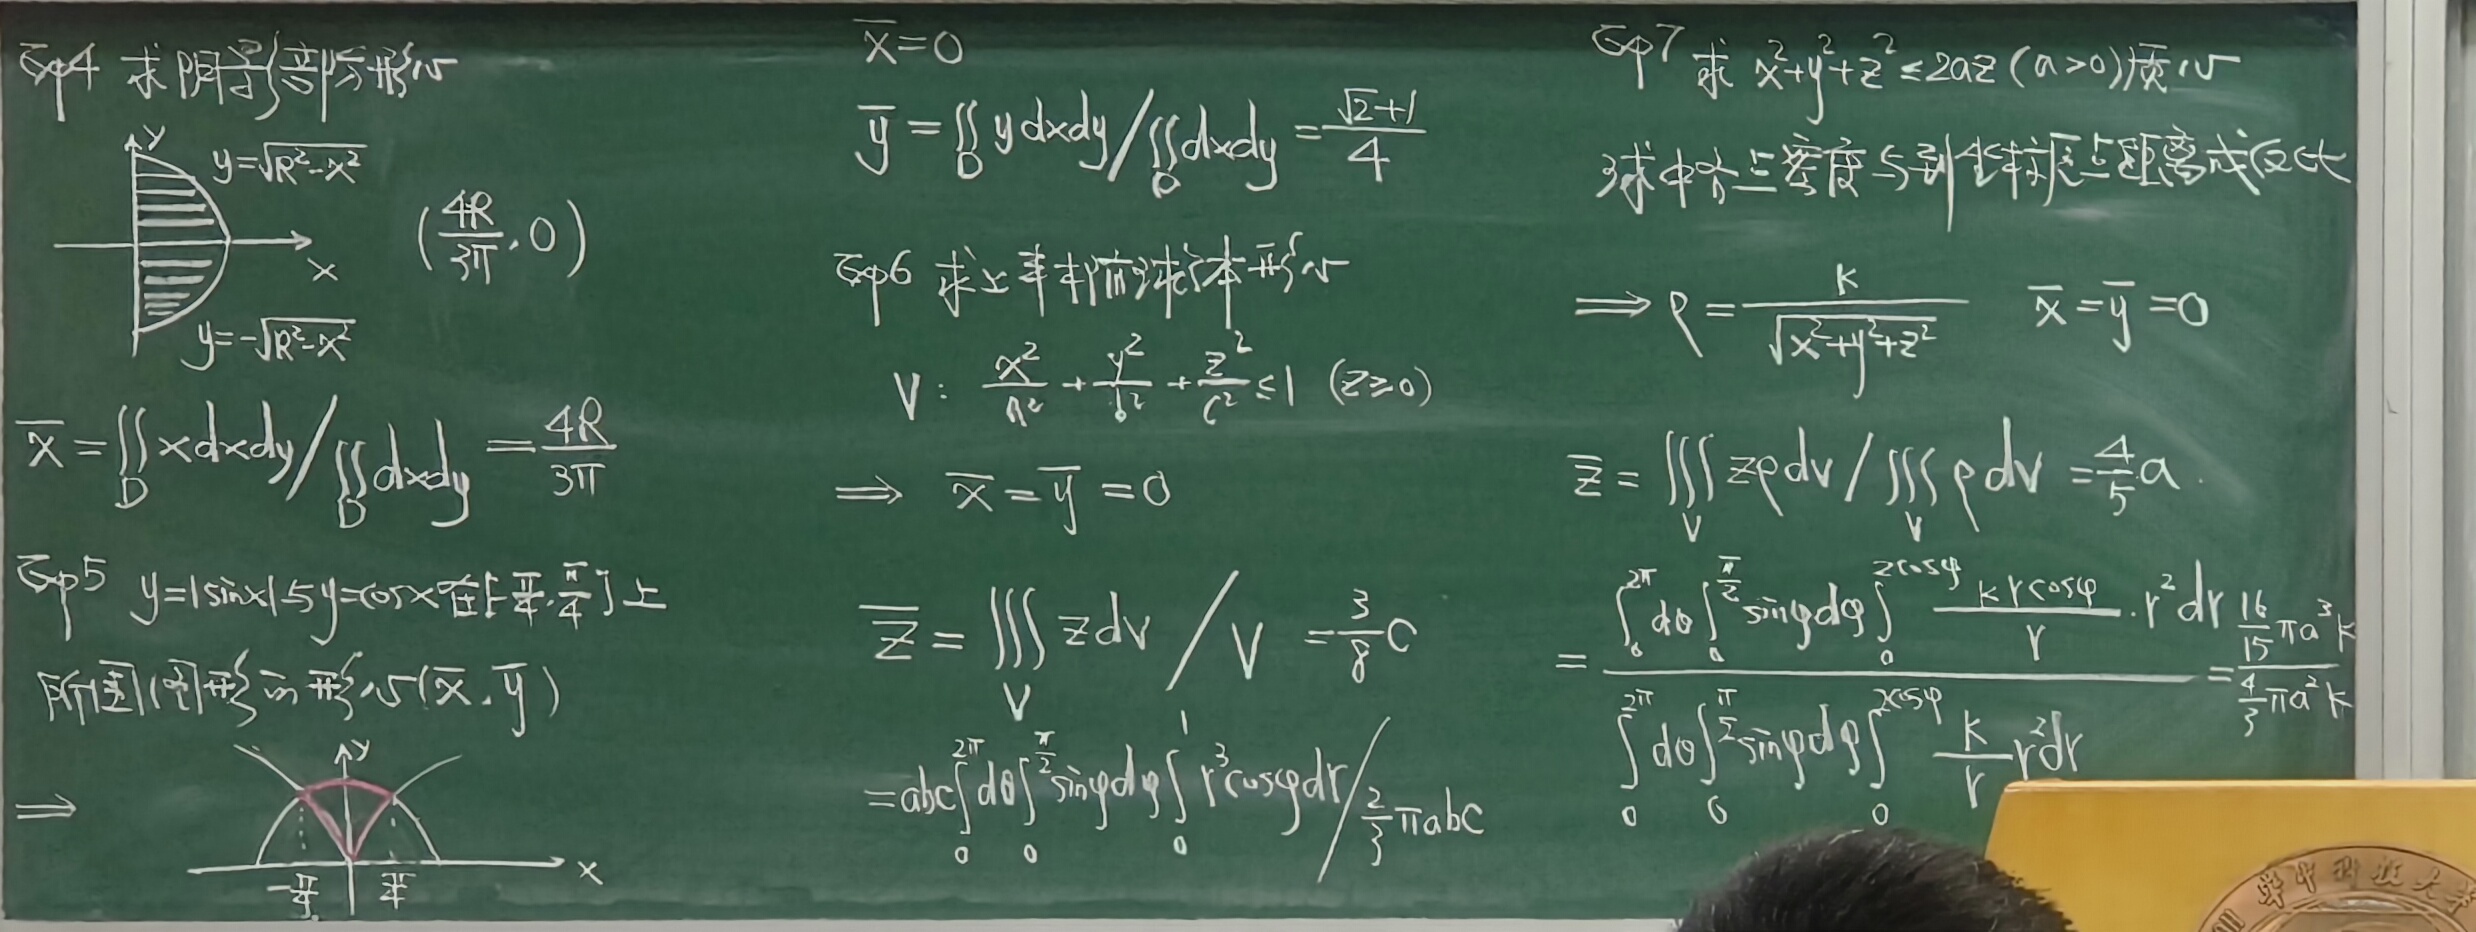 Eg4 求阴影部分形心
y
y=√(R²-x²)
(4R/3π, 0)
x
y=-√(R²-x²)
x̄=∬_D xdxdy/∬_D dxdy=4R/3π
Eg5 y=|sinx|与y=cosx在[-π/4,π/4]上
所围图形的形心(x̄,ȳ)
⇒
y
x
-π/4 π/4
x̄=0
ȳ=∬_D ydxdy/∬_D dxdy=(√2+1)/4
Eg6 求上半椭球体形心
V: x²/a²+y²/b²+z²/c²≤1 (z≥0)
⇒ x̄=ȳ=0
z̄=∭_V zdv/V=3/8 c
=abc∫_0^{2π}dθ∫_0^{π/2}sinφdφ∫_0^1 r³cosφdr/(2/3)πabc
Eg7 求 x²+y²+z²≤2az (a>0)质心
球中各点密度与到坐标原点距离成反比
⇒ρ=k/√(x²+y²+z²) x̄=ȳ=0
z̄=∭_V zρdv/∭_V ρdv=4/5 a.
=(∫_0^{2π}dθ∫_0^{π/2}sinφdφ∫_0^{2cosφ} (krcosφ/r)·r²dr)/(∫_0^{2π}dθ∫_0^{π/2}sinφdφ∫_0^{2cosφ} (k/r)r²dr)=(16/15 πa³k)/(4/3 πa²k)
华中科技大